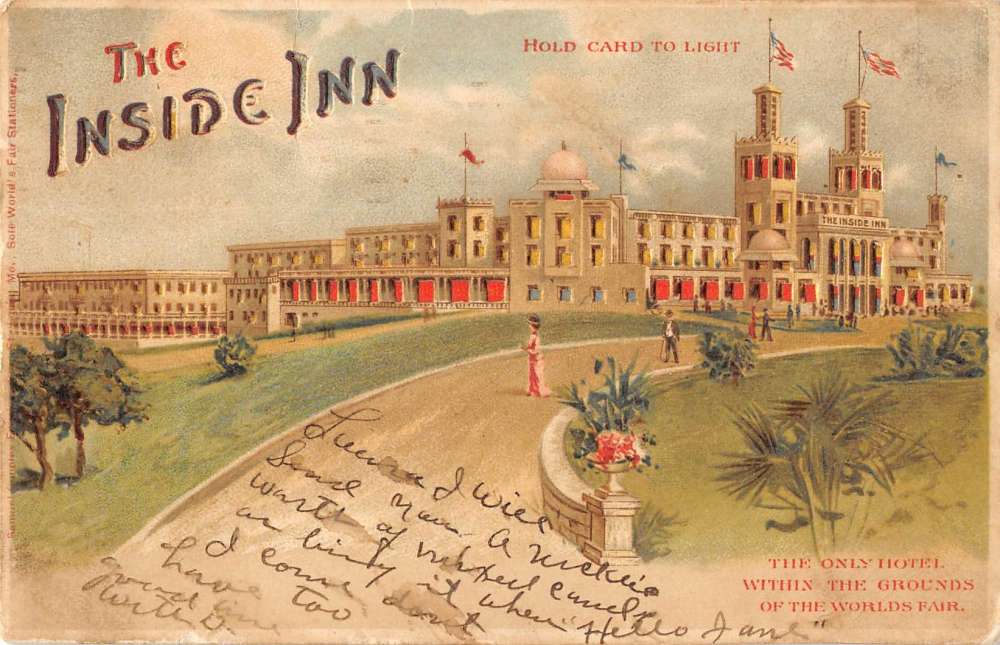 THE
INSIDE INN
HOLD CARD TO LIGHT
THE INSIDE INN
Mo., Sole World's Fair Stationers.
Laura I will
Send you a nickels
worth of
or bring it when
I come dont
have too
good time
"Hello Jane"
THE ONLY HOTEL
WITHIN THE GROUNDS
OF THE WORLDS FAIR.